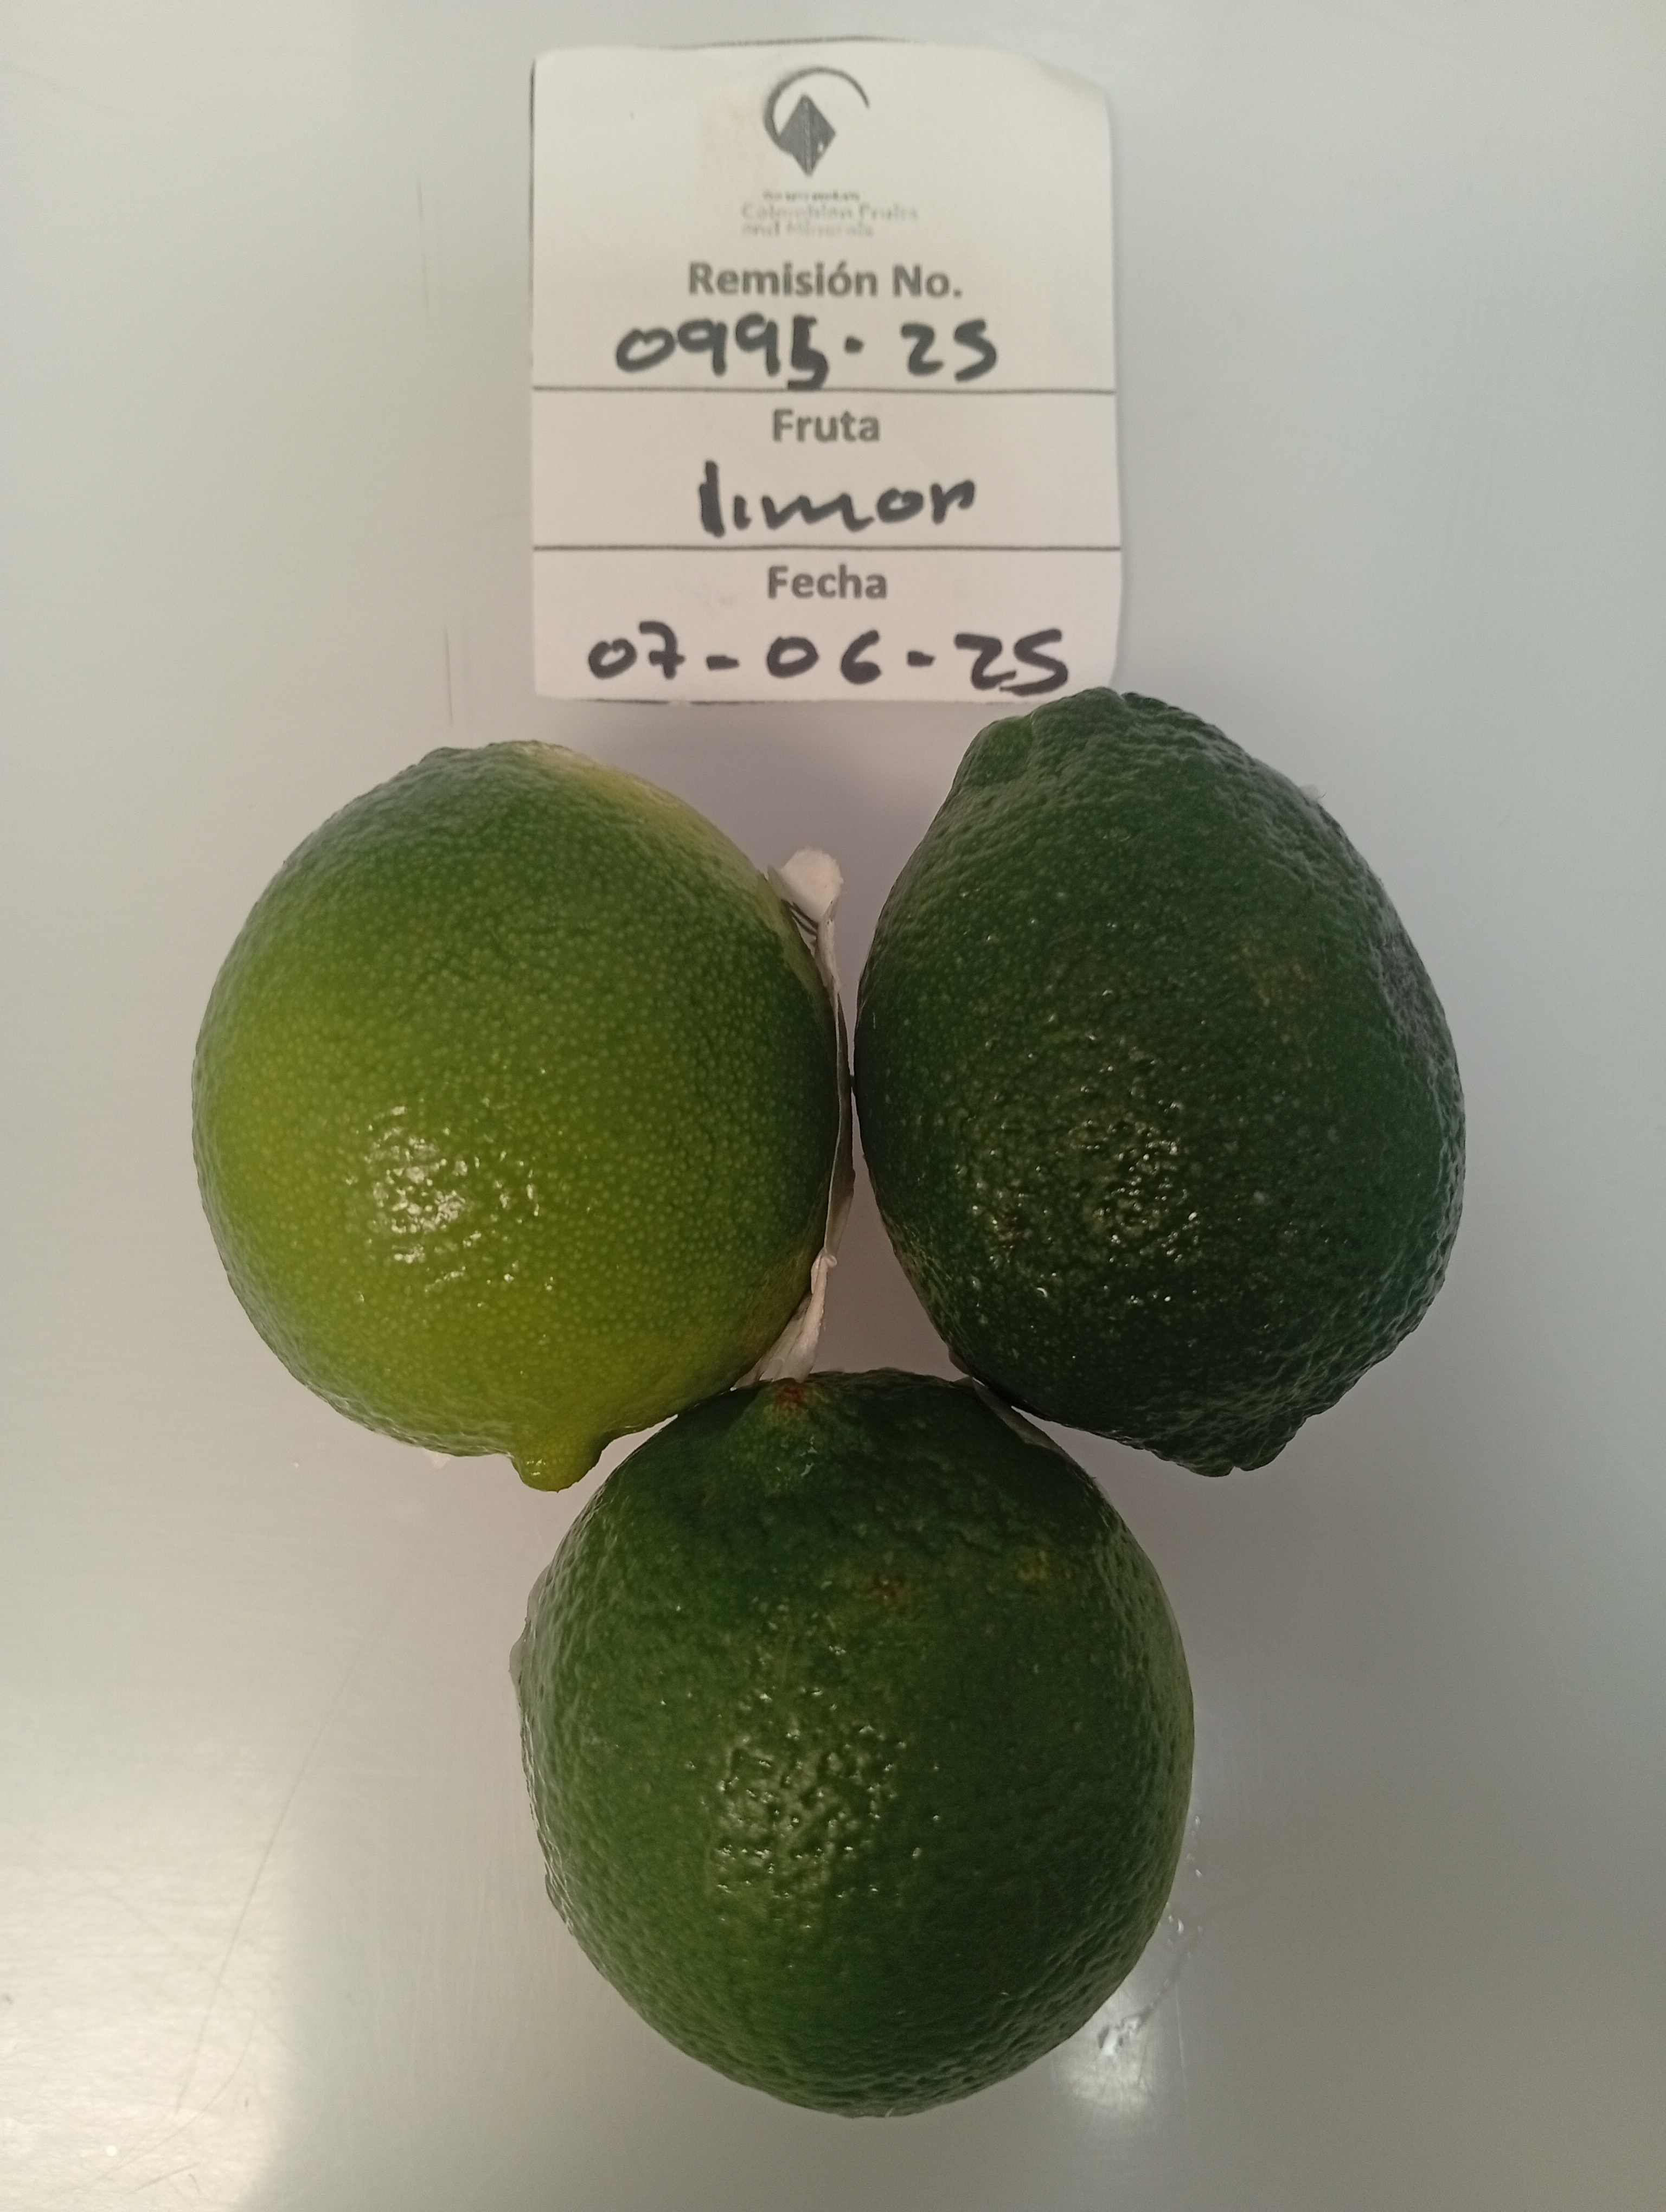 Colombian Fruits
and Minerals
Remisión No.
0995-25
Fruta
limon
Fecha
07-06-25